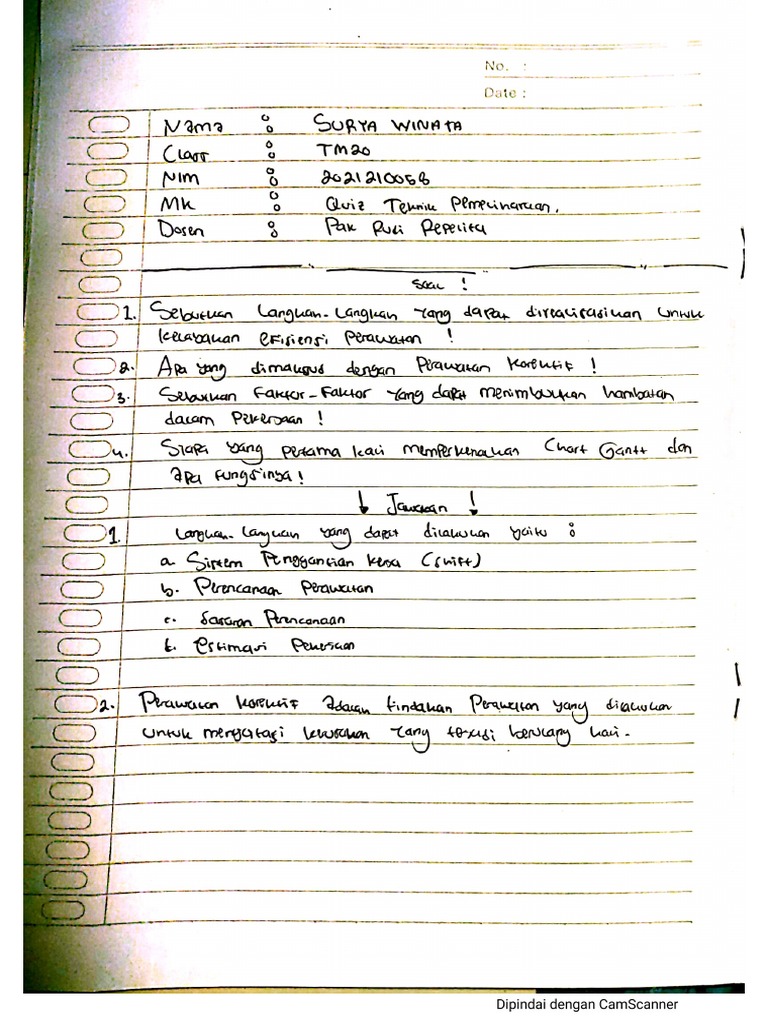 No. :
Date :
Nama : SURYA WINATA
Class : TM20
NIM : 2021210058
MK : Quiz Teknik Pemeliharaan.
Dosen : Pak Rudi Repelita
Soal !
1. Sebutkan Langkah-Langkah yang dapat direalisasikan untuk
efisiensi Perawatan !
2. Apa yang dimaksud dengan Perawatan Korektif !
3. Sebutkan Faktor-Faktor yang dapat menimbulkan hambatan
dalam Pekerjaan !
4. Siapa yang pertama kali memperkenalkan Chart Gantt dan
apa fungsinya !
! Jawaban !
1. Langkah-Langkah yang dapat dilakukan yaitu :
a. Sistem Penggantian kerja (shift)
b. Perencanaan Perawatan
c. Sasaran Perencanaan
Estimasi Pekerjaan
2. Perawatan Korektif adalah tindakan Perawatan yang dilakukan
untuk mengatasi kerusakan yang terjadi berulang kali.
Dipindai dengan CamScanner